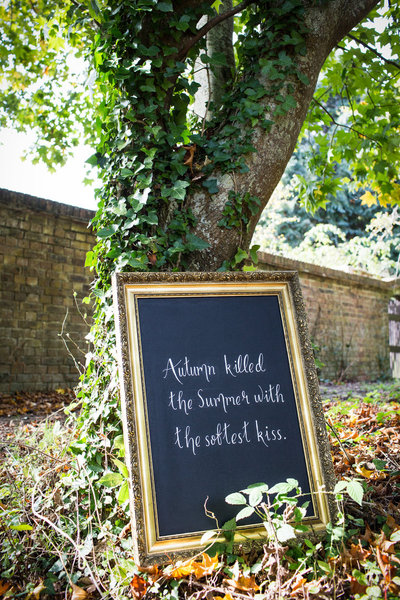 Autumn killed
the Summer with
the softest kiss.